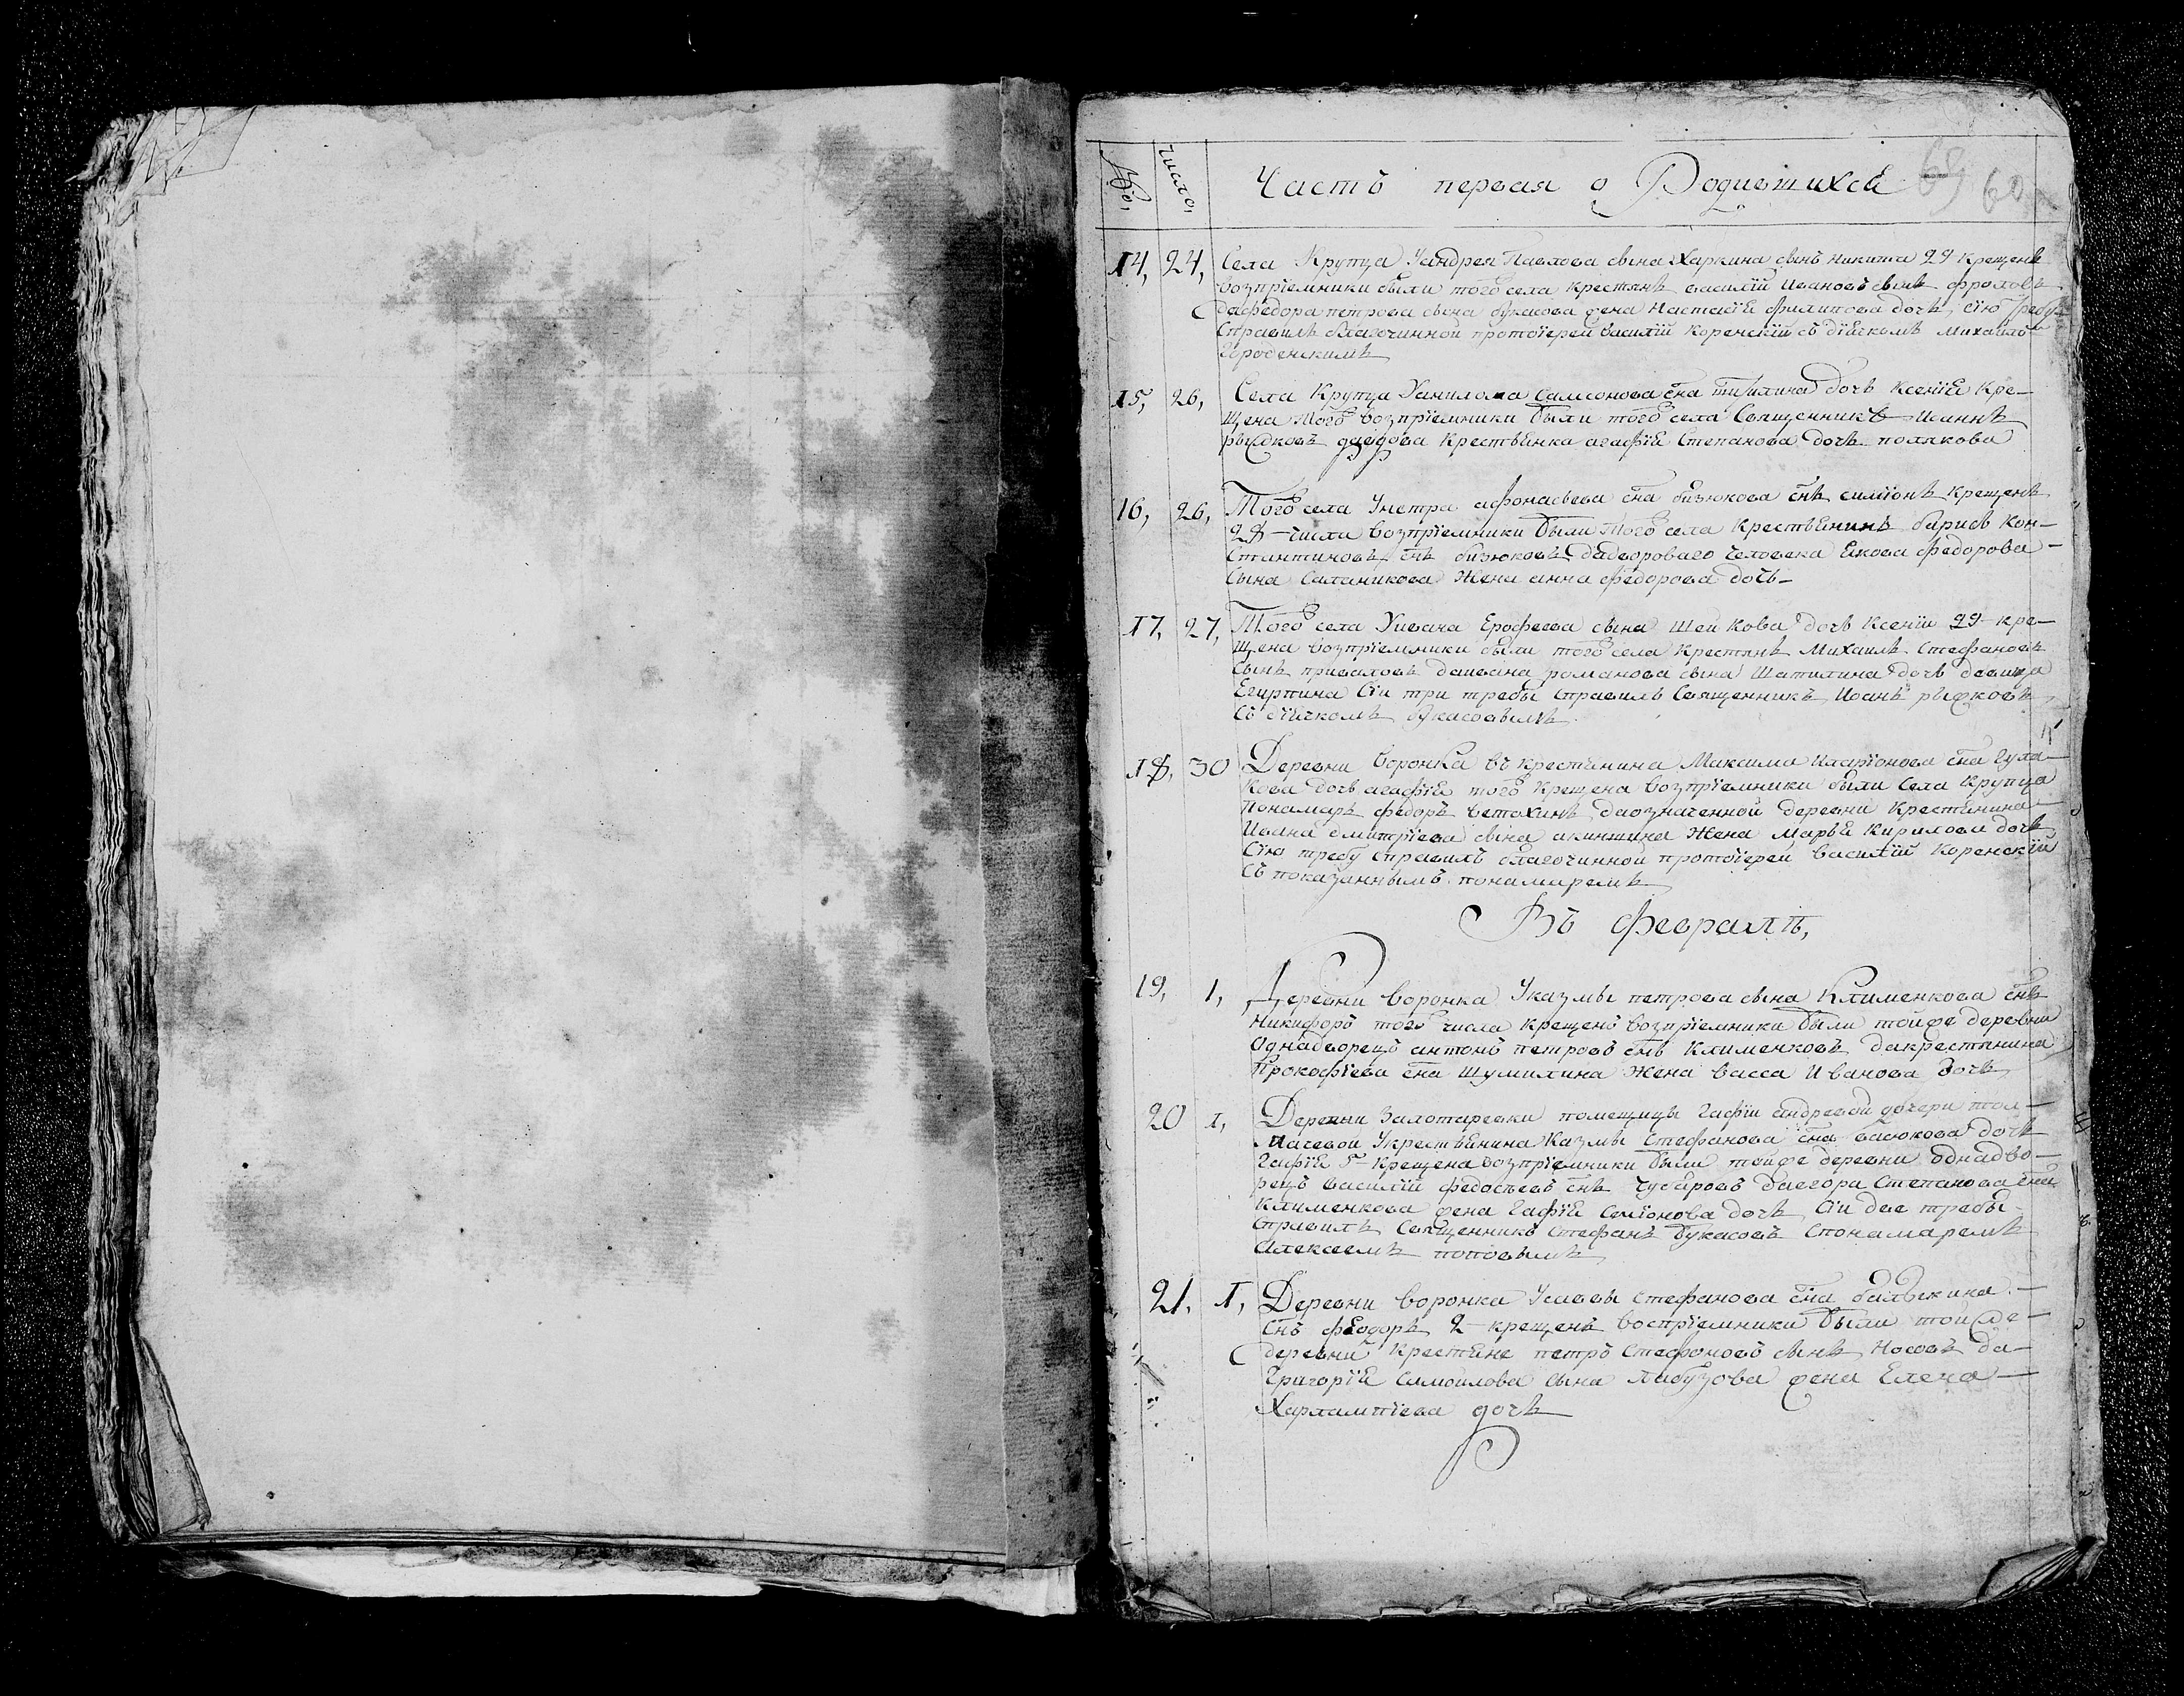 №, число, Часть первая о Родившихся 60
14, 24, Села Крупца Уандрея Павлова сына Харкина сынъ никита 29 крещенъ
возпрiемники были того села крестянъ василiй Ивановъ сынъ фроловъ
дафедора петрова сына букасова жена Настасiя филипова дочь, сiю требу
справилъ благочинной протоiерей василiй Коренскiй съ дiячкомъ михаилъ
Городенскимъ
15, 26, Села Крупца Уанилома Самсонова сна дочь Ксенiя Кре-
щена того возпрiемники были того села Священникъ Иоаннъ
рыжковъ крествянка агафiя Степанова дочь полякова
16, 26, Того села Упетра афонасьева сна бизюкова снъ симионъ крещенъ
28 числа возпрiемники были того села крествянинъ барисъ Кон-
стантиновъ снъ бизюковъ дадвороваго человека Якова федорова
сына Саланикова жена анна федорова дочь
17, 27, Того села Уивана Ерофеева сына Шейкова дочь Ксенiи 29 кре-
щена возпрiемники были того села крестянъ Михаилъ Стефановъ
сынъ приваловъ даивана романова сына Шатилина дочь девица
Сiи три требы справилъ Священникъ Иоанъ рыжковъ
съ дiячкомъ букасовымъ
18, 30 Деревни воронка въ крестянина Максима Иларiонова сна Гула-
кова дочь агафiя того крещена возпрiемники были Села Крупца
пономарь федоръ ветохинъ даозначенной деревни крестянина
Ивана дмитрiева сына акиншина жена марья Кирилова дочь
Сiю требу справилъ благочинной протоiерей василiй Коренскiй
съ показаннымъ понамаремъ
Въ февралъ,
19, 1, Деревни воронка Указмы петрова сына Клименкова снъ
никифоръ того числа крещенъ возпрiемники были тойже деревни
однадворецъ антонъ петровъ снъ Клименковъ дакрестянина
Прокофiева сна шумилина жена васса Иванова дочь
20 1, Деревни Залотаревки помещицы Гафiи андреевой дочери тол-
мачевой Укрествянина Казмы Стефанова сна васюкова дочь
Гафiя 5 крещена возпрiемники были тойже деревни однадво-
рецъ василiй федосеевъ снъ даегора Степанова сна
Клименкова жена Гафiя Семiонова дочь, Сiи две требы
справилъ Священникъ Стефанъ букасовъ спонамаремъ
Алексеемъ поповымъ
21, 1, Деревни воронка Усаввы стефанова сна балыкина
снъ феодоръ 2 крещенъ воспрiемники были той же
деревни крестяне петръ Стефановъ сынъ носовъ да
Григорiя Самоилова сына лабузова жена Елена
Харлампiева дочь